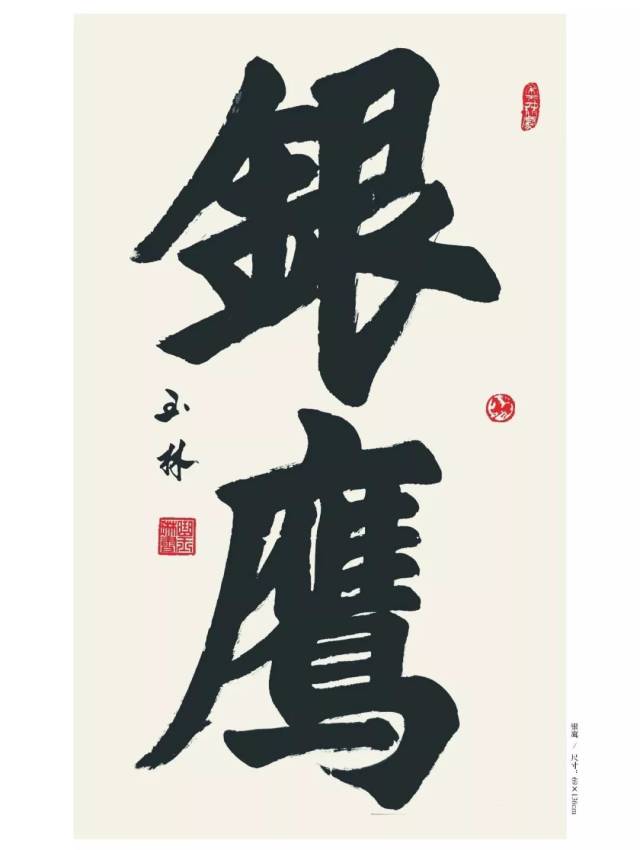 銀鷹
玉林
银鹰 / 尺寸：69×136cm